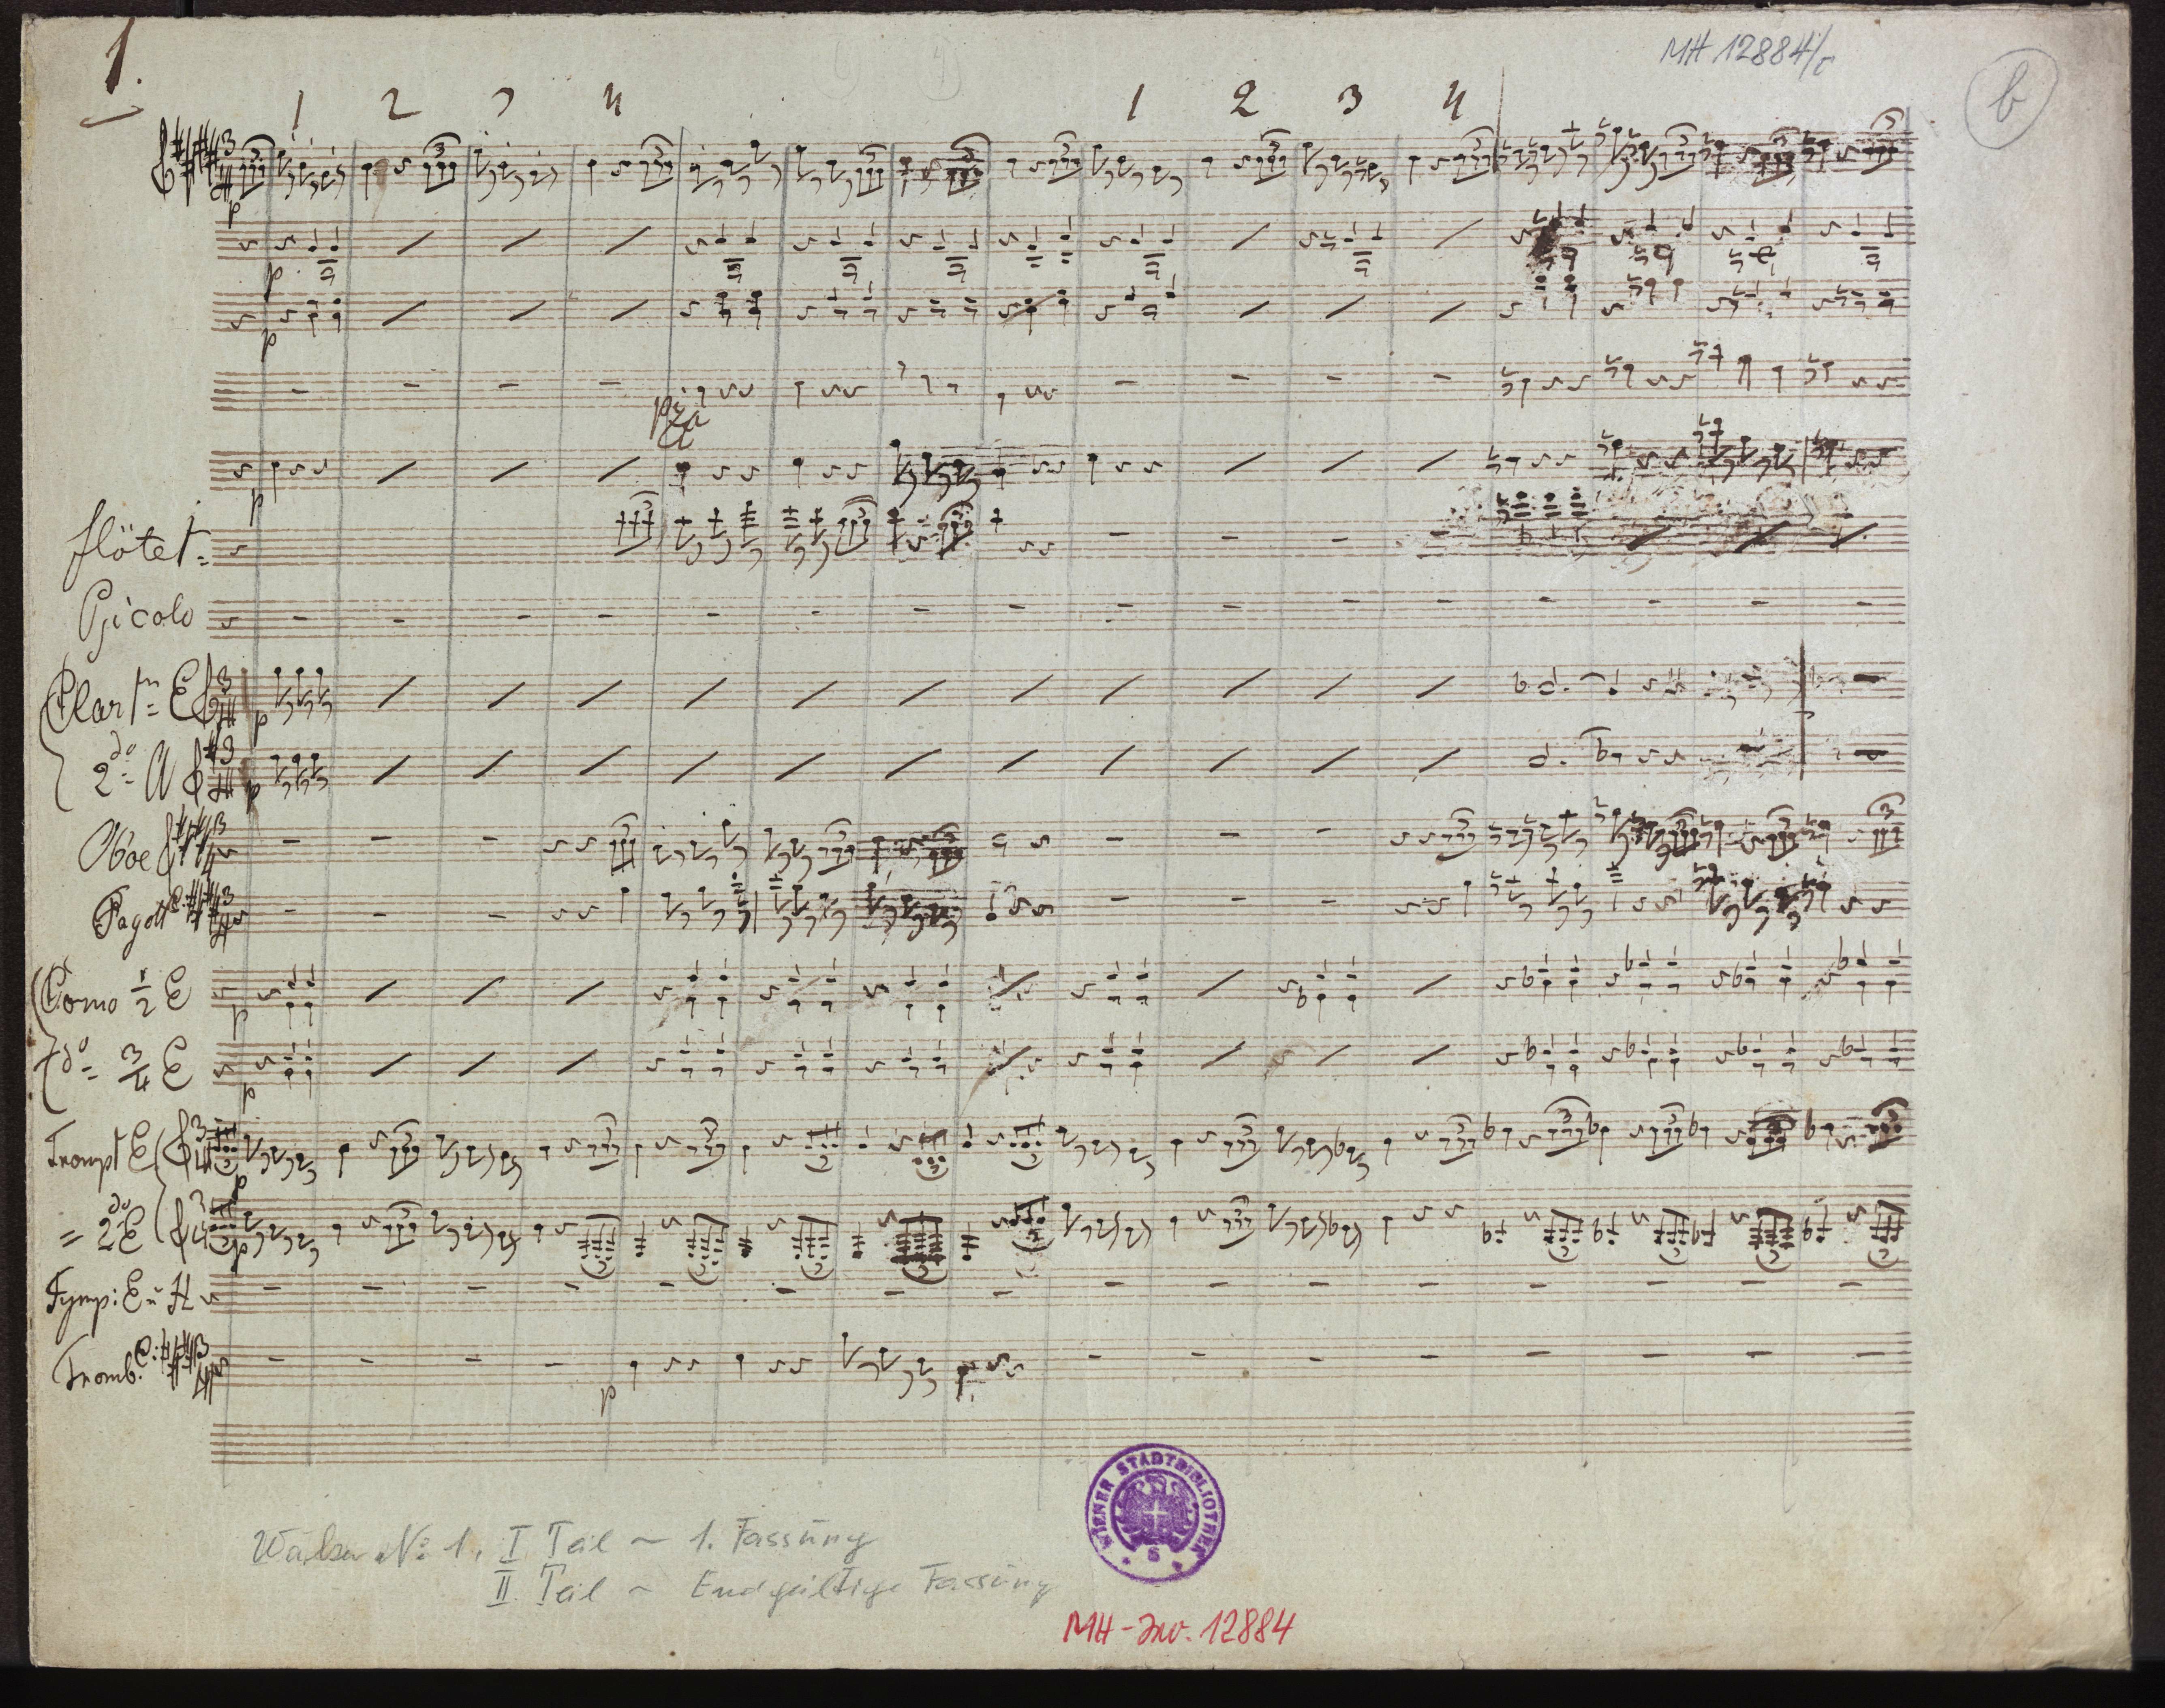 1.
MH 12884/c
b
1 2 3 4 1 2 3 4
p
p
p
piza
p
Flöte
Picolo
Clar E
p
2do A
p
Oboe
Fagott
Corno 1/2 E
p
do 3/4 E
p
Trompt E
p
2do E
p
Tymp: E H
Tromb:
p
WIENER STADTBIBLIOTHEK
Walzer No 1, I Teil ~ 1. Fassung
II Teil ~ Endgültige Fassung
MH-Inv. 12884